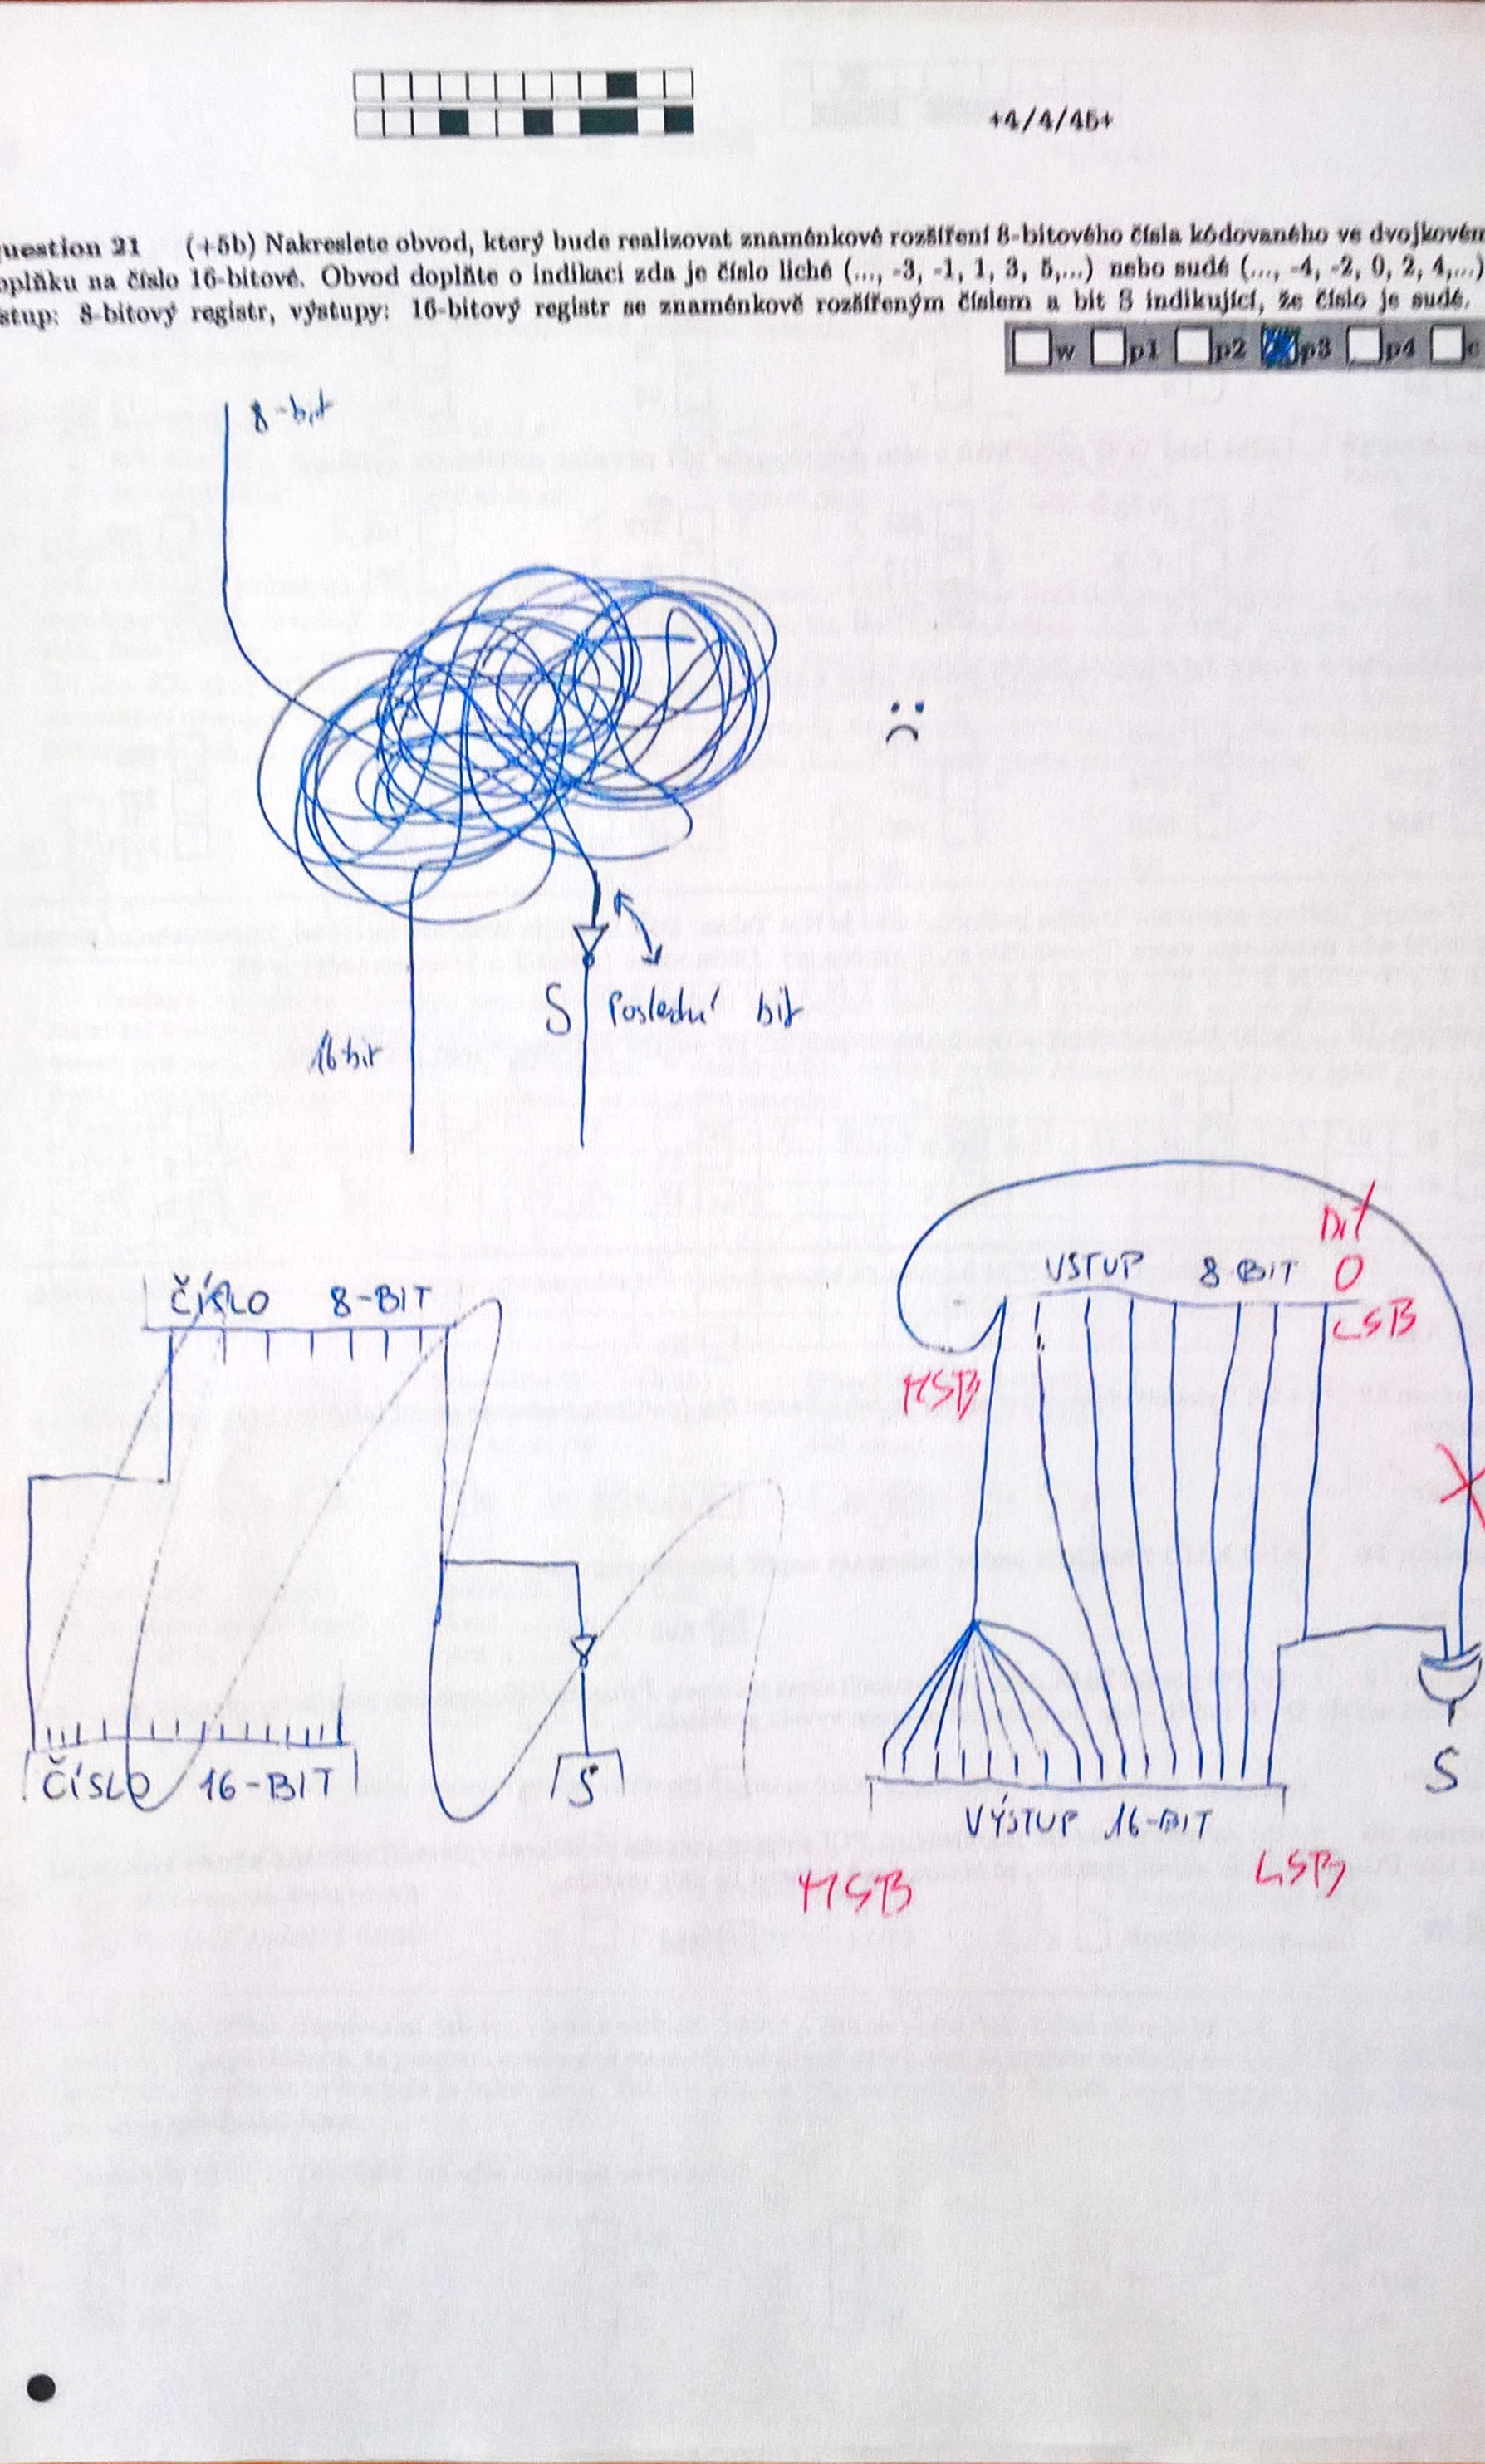 +4/4/45+
uestion 21 (+5b) Nakreslete obvod, který bude realizovat znaménkové rozšíření 8-bitového čísla kódovaného ve dvojkovém
oplňku na číslo 16-bitové. Obvod doplňte o indikaci zda je číslo liché (..., -3, -1, 1, 3, 5,...) nebo sudé (..., -4, -2, 0, 2, 4,...)
stup: 8-bitový registr, výstupy: 16-bitový registr se znaménkově rozšířeným číslem a bit S indikující, že číslo je sudé.
w p1 p2 p3 p4 c
8-bit
S Poslední bit
16 bit
Bit
VSTUP 8-BIT 0
ČÍSLO 8-BIT
LSB
MSB
ČÍSLO 16-BIT S
S
VÝSTUP 16-BIT
MSB LSB